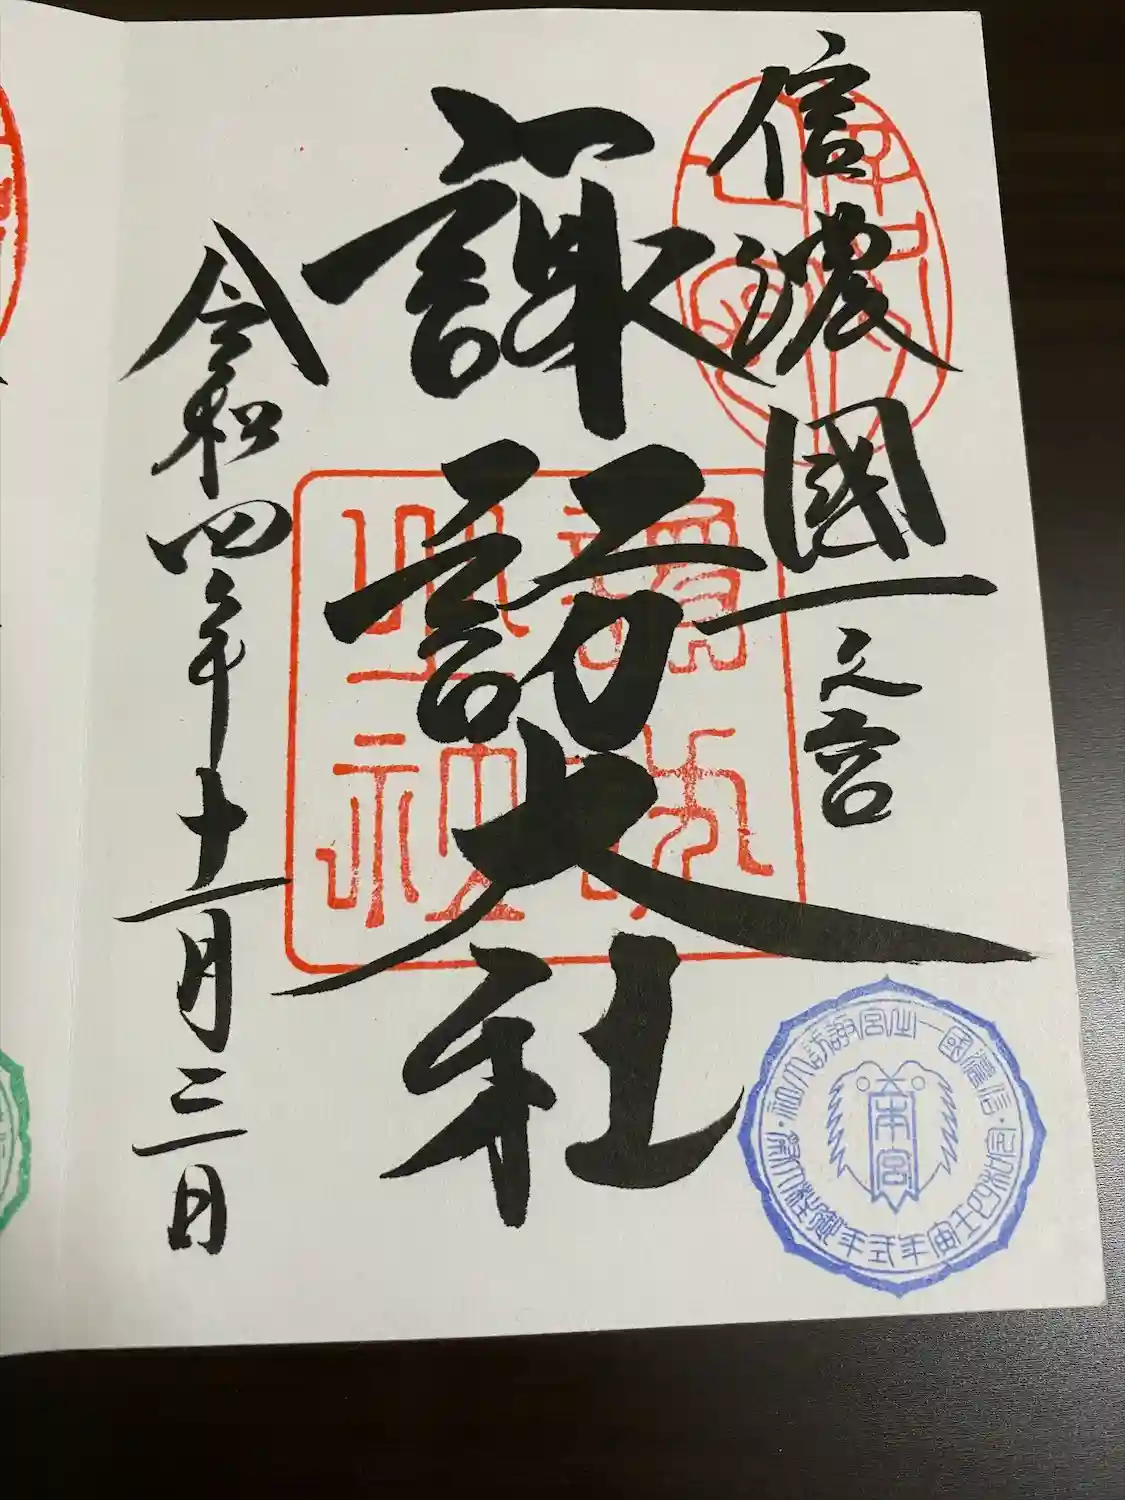 信濃國一之宮
諏訪大社
令和四年十一月三日
信濃國一之宮諏訪大社
令和四壬寅年式年御柱大祭
本宮